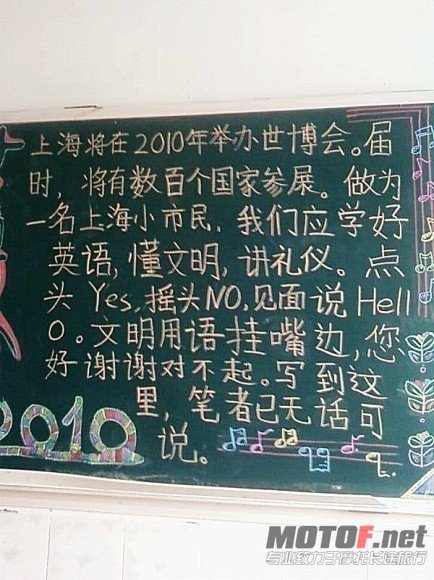 上海将在2010年举办世博会。届
时，将有数百个国家参展。做为
一名上海小市民，我们应学好
英语，懂文明，讲礼仪。点
头Yes,摇头NO,见面说Hell
O。文明用语挂嘴边,您
好谢谢对不起。写到这
里，笔者已无话可
说。
2010
MOTOF.net
专业致力于摩托长途旅行